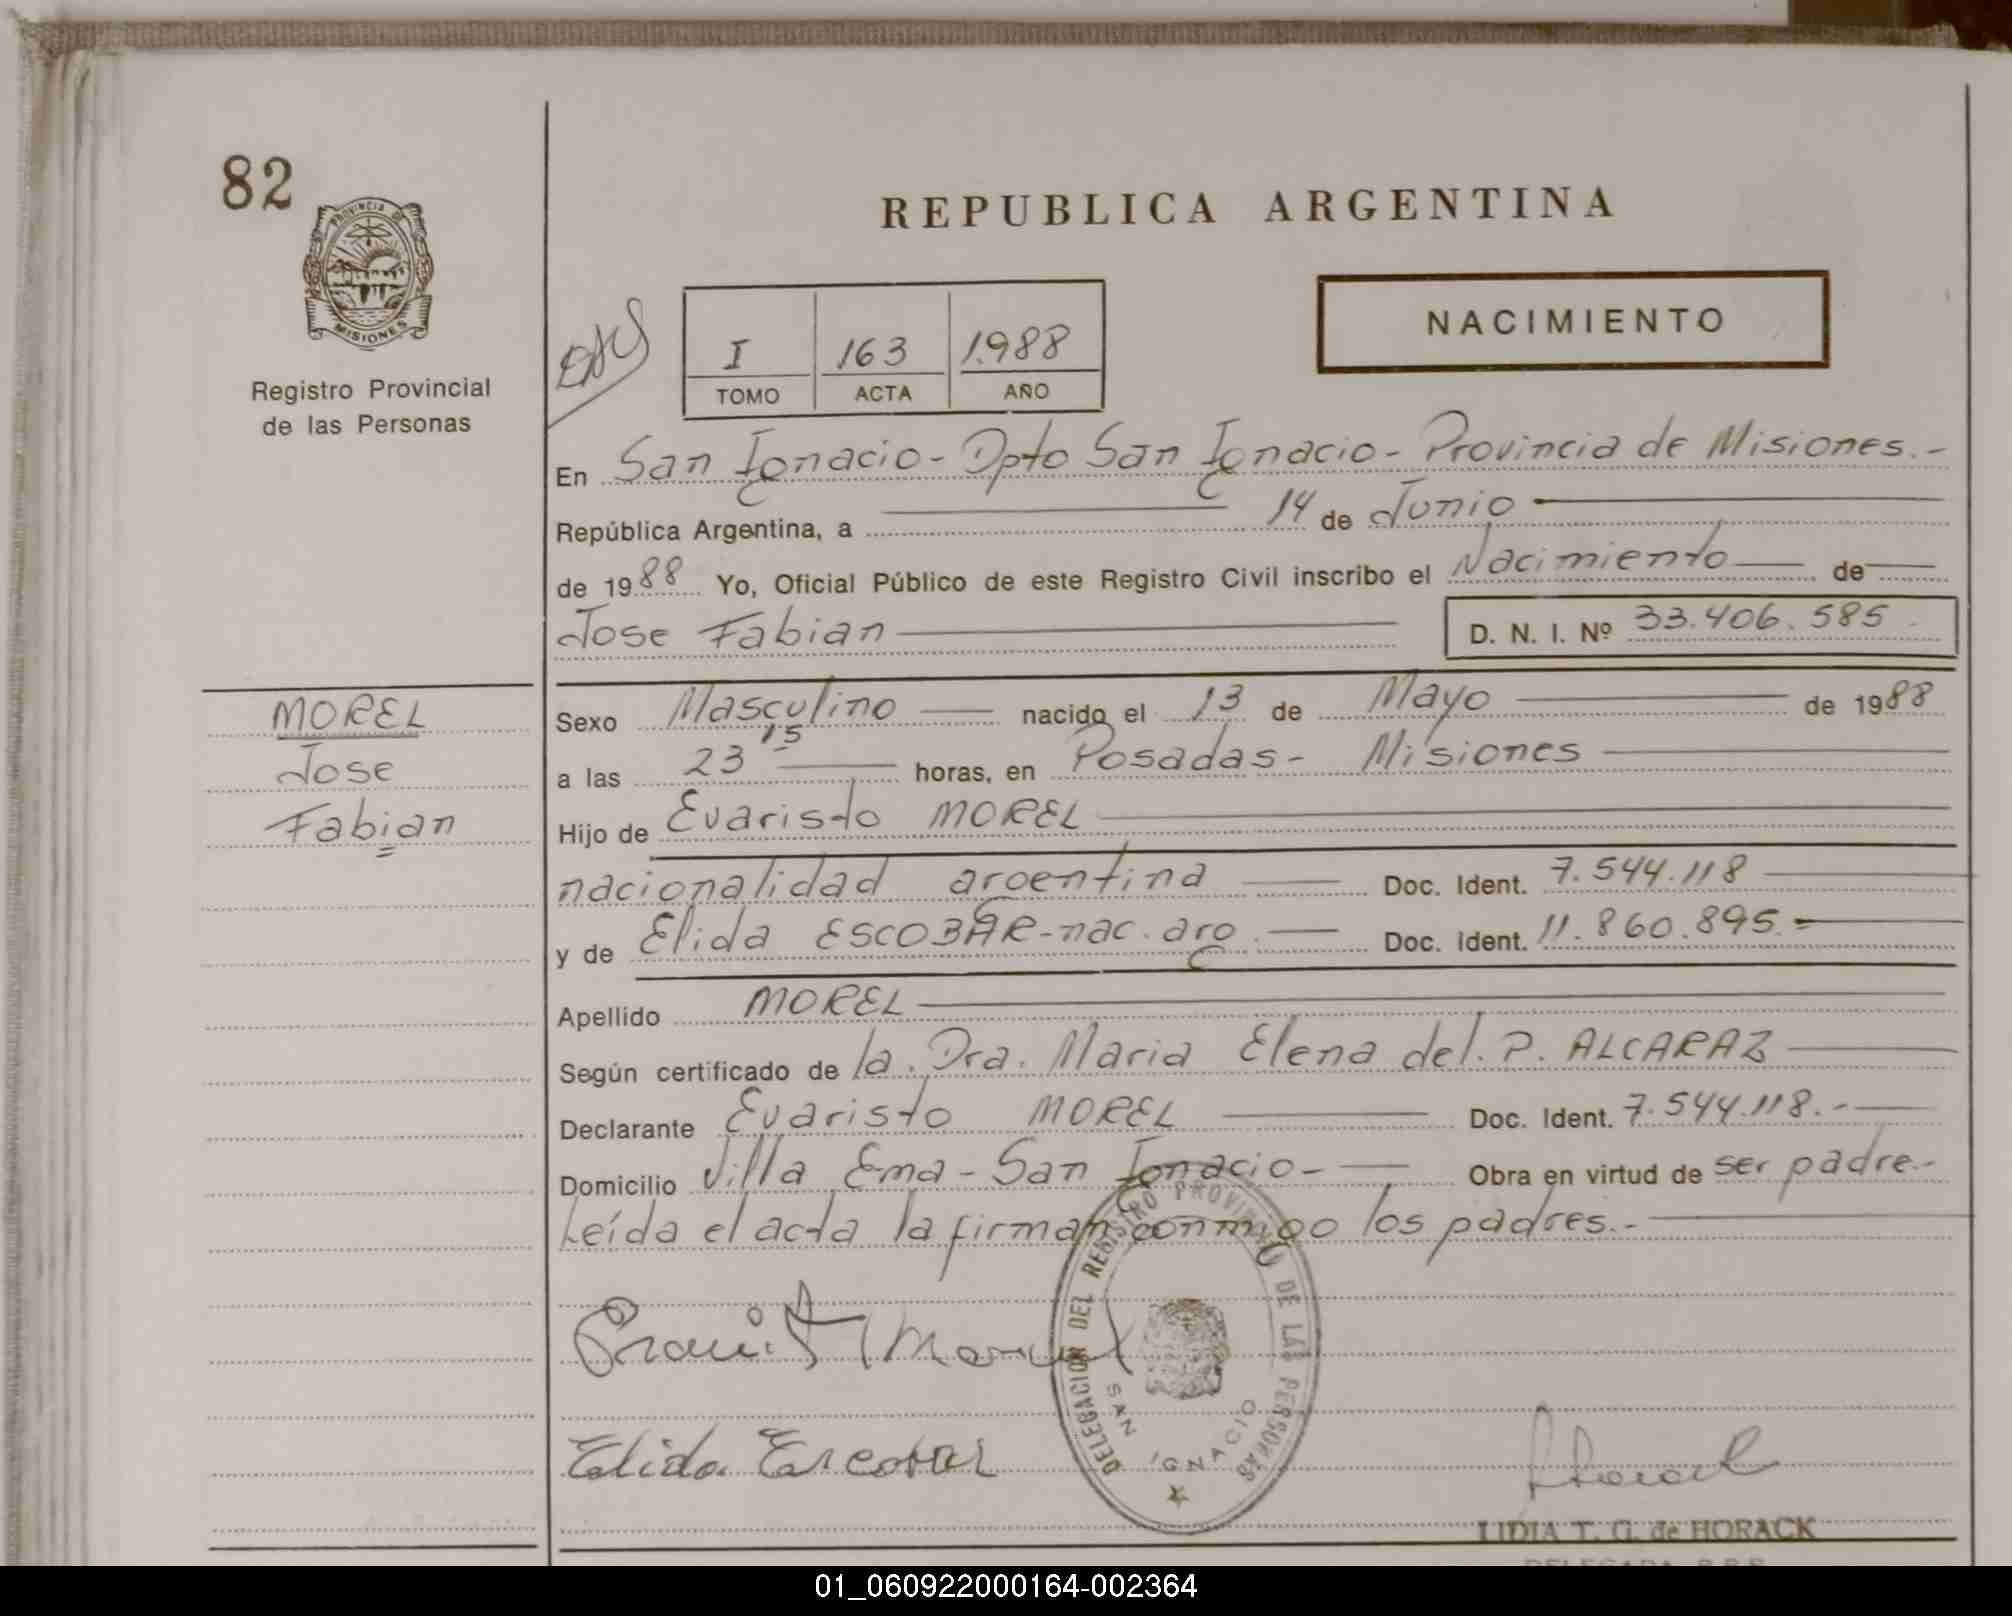 82
PROVINCIA DE
MISIONES
Registro Provincial
de las Personas
REPUBLICA ARGENTINA
NACIMIENTO
I 163 1.988
TOMO ACTA AÑO
En San Ignacio - Dpto San Ignacio - Provincia de Misiones.-
República Argentina, a 14 de Junio
de 1988 Yo, Oficial Público de este Registro Civil inscribo el Nacimiento de
Jose Fabian D. N. I. Nº 33.406.585
MOREL
Jose
Fabian
Sexo Masculino nacido el 13 de Mayo de 1988
a las 23 15 horas, en Posadas - Misiones
Hijo de Evaristo MOREL
nacionalidad argentina Doc. Ident. 7.544.118
y de Elida ESCOBAR - nac. arg. Doc. Ident. 11.860.895.-
Apellido MOREL
Según certificado de la. Dra. Maria Elena del. P. ALCARAZ
Declarante Evaristo MOREL Doc. Ident. 7.544.118.-
Domicilio Villa Ema - San Ignacio - Obra en virtud de ser padre.-
Leída el acta la firman conmigo los padres.-
DELEGACION DEL REGISTRO PROVINCIAL DE LAS PERSONAS
SAN IGNACIO
Morel
Elida Escobar
Horack
LIDIA T. G. de HORACK
01_060922000164-002364